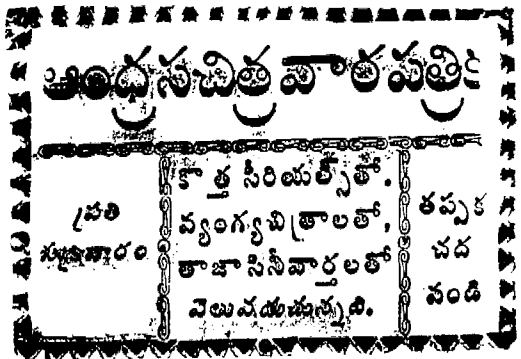 ఆంధ్రసచిత్రవారపత్రిక
ప్రతి
బుధవారం
కొత్త సీరియల్స్‌తో.
వ్యంగ్యచిత్రాలతో,
తాజాసినీవార్తలతో
వెలువడుచున్నది.
తప్పక
చద
వండి